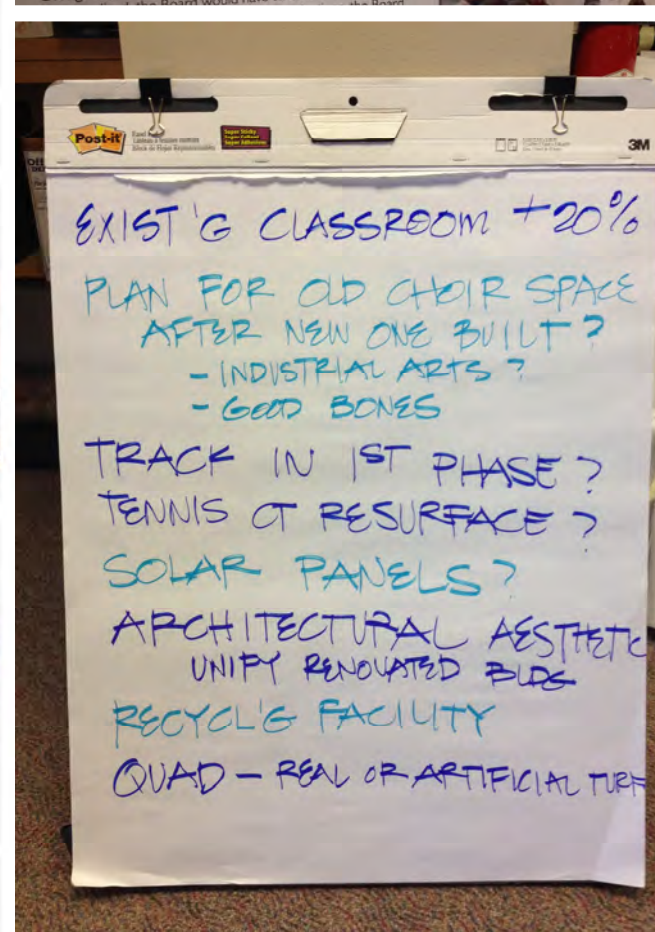 the Board would have
Post-it
Super Sticky
3M
EXIST'G CLASSROOM +20%
PLAN FOR OLD CHOIR SPACE
AFTER NEW ONE BUILT?
- INDUSTRIAL ARTS?
- GOOD BONES
TRACK IN 1ST PHASE?
TENNIS CT RESURFACE?
SOLAR PANELS?
ARCHITECTURAL AESTHETIC
UNIFY RENOVATED BLDG
RECYCL'G FACILITY
QUAD - REAL OR ARTIFICIAL TURF